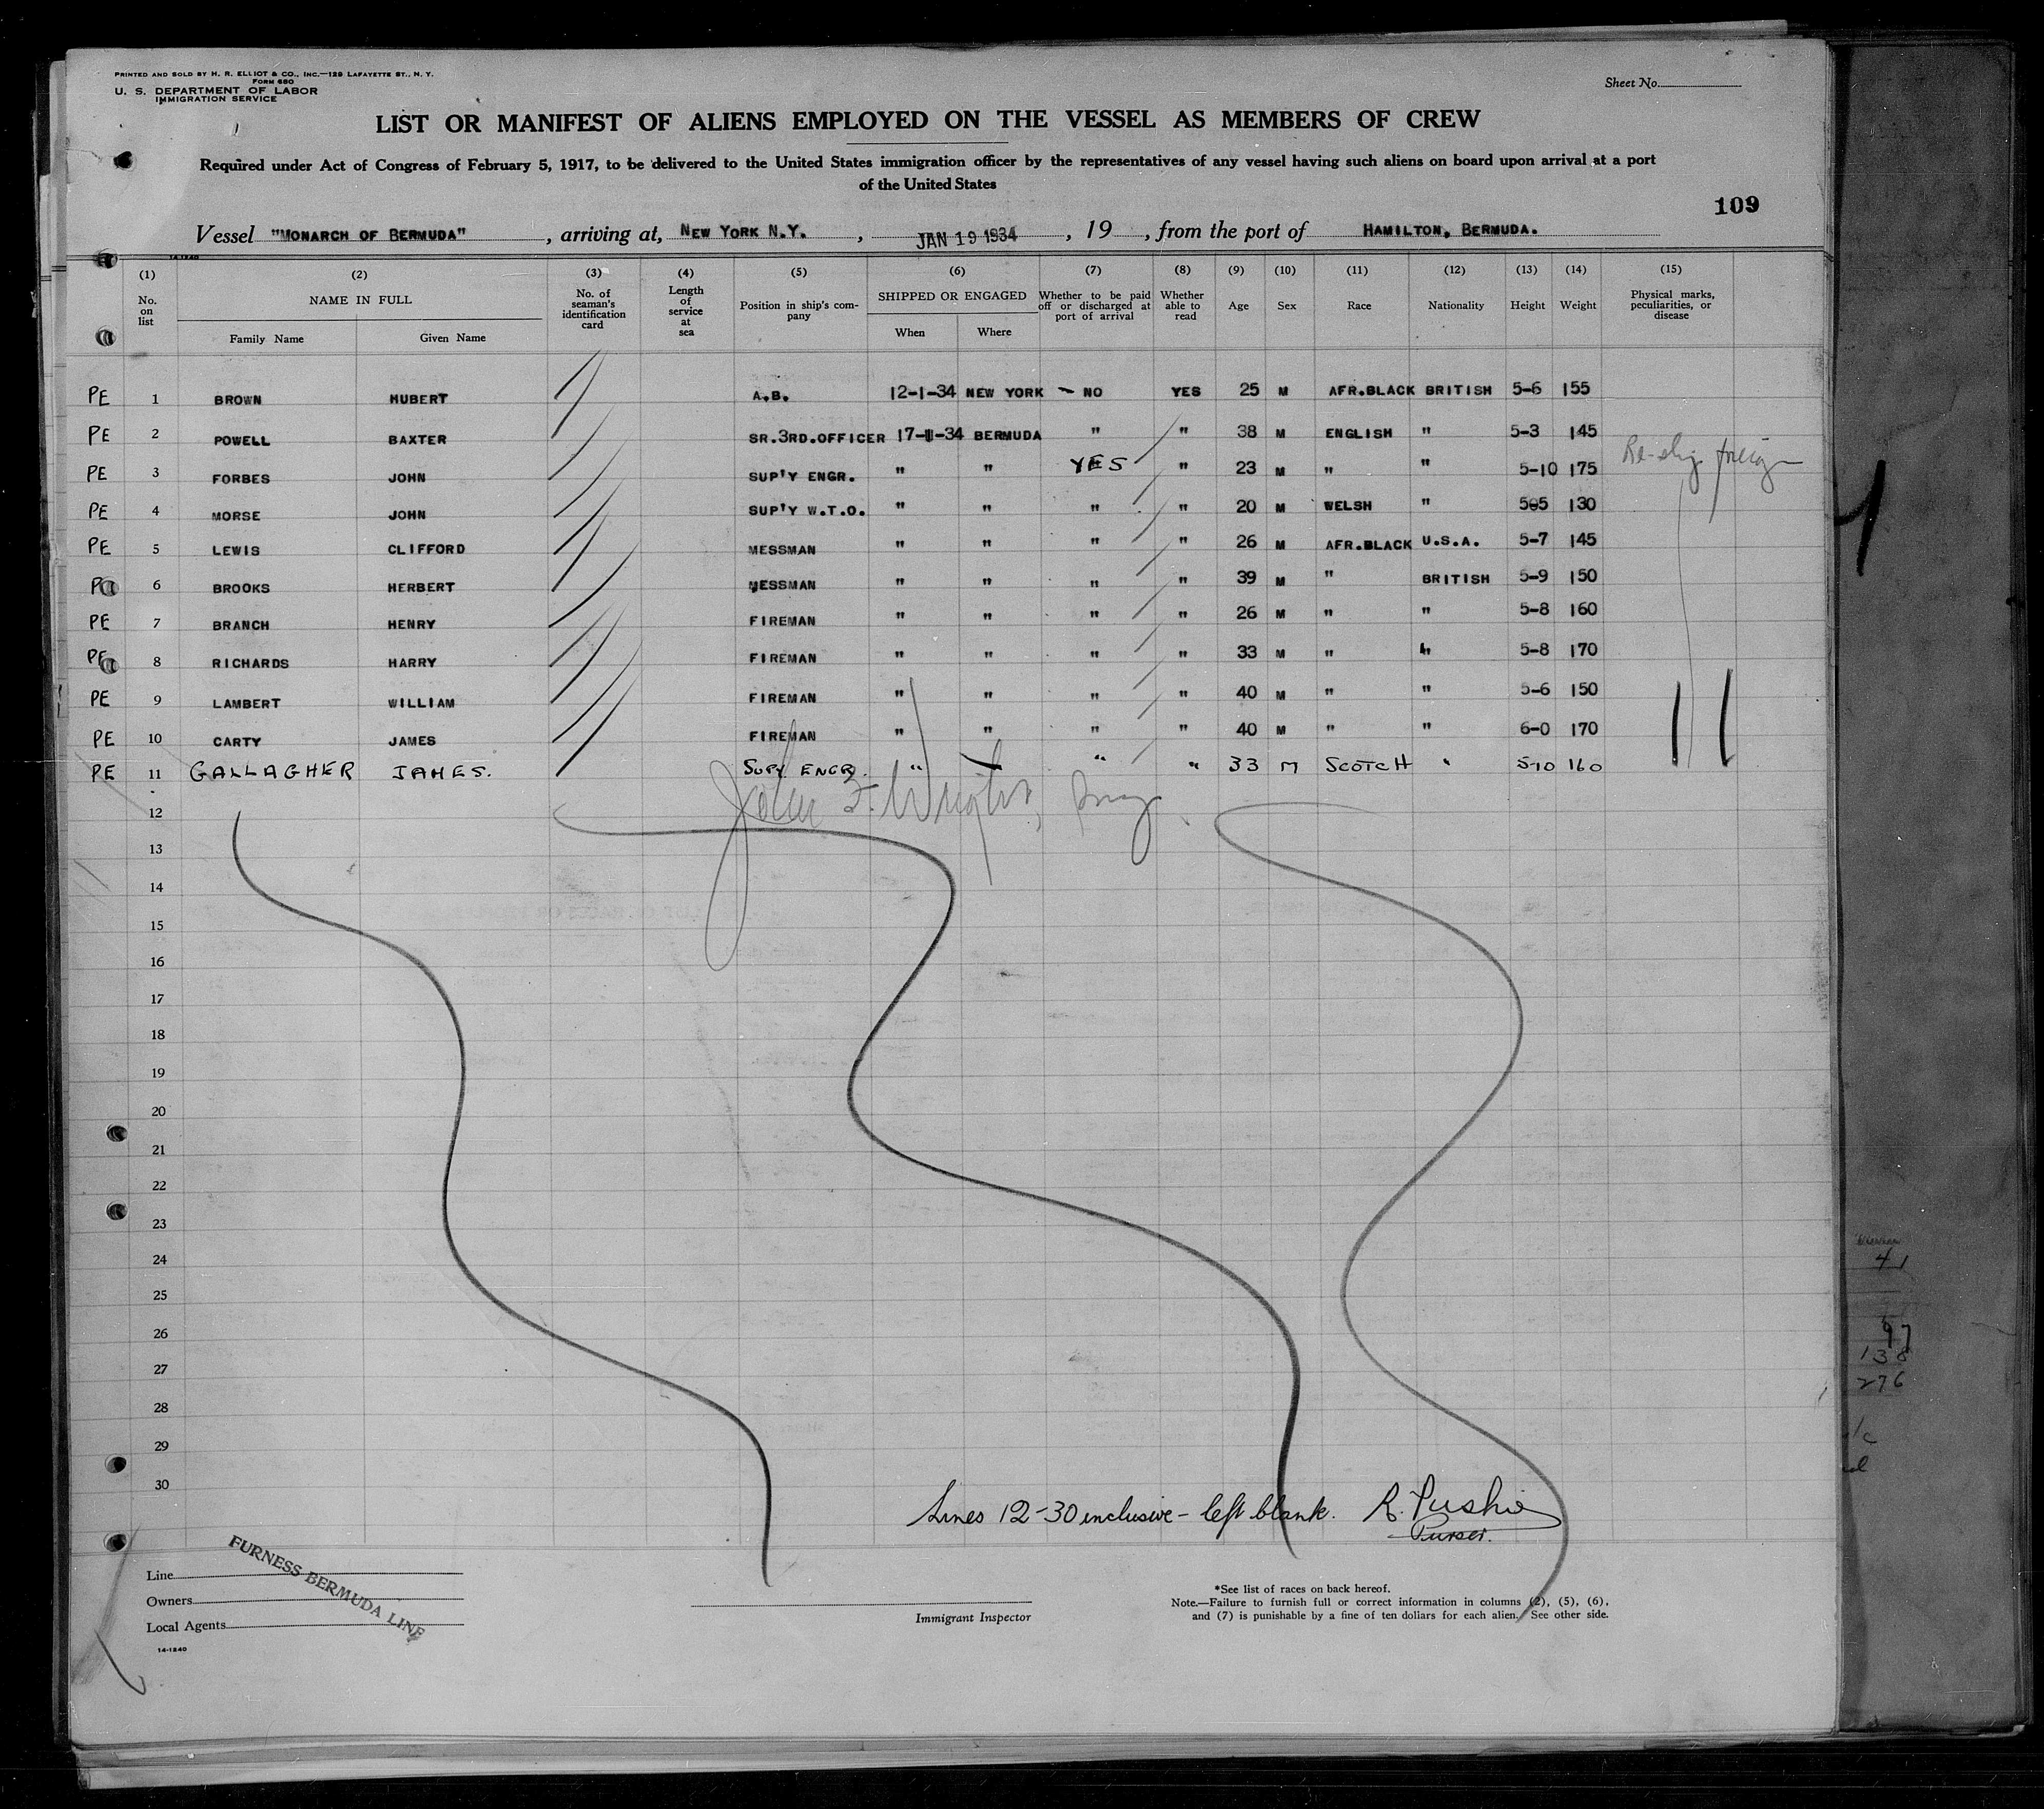 PRINTED AND SOLD BY H. R. ELLIOT & CO., INC.—129 LAFAYETTE ST., N. Y.
FORM 680
U. S. DEPARTMENT OF LABOR
IMMIGRATION SERVICE
Sheet No.
LIST OR MANIFEST OF ALIENS EMPLOYED ON THE VESSEL AS MEMBERS OF CREW
Required under Act of Congress of February 5, 1917, to be delivered to the United States immigration officer by the representatives of any vessel having such aliens on board upon arrival at a port
of the United States
109
Vessel "MONARCH OF BERMUDA", arriving at, NEW YORK N.Y., JAN 19 1934, 19 , from the port of HAMILTON, BERMUDA.
14-1240
(1) (2) (3) (4) (5) (6) (7) (8) (9) (10) (11) (12) (13) (14) (15)
No. on list NAME IN FULL Family Name Given Name No. of seaman's identification card Length of service at sea Position in ship's company SHIPPED OR ENGAGED When Where Whether to be paid off or discharged at port of arrival Whether able to read Age Sex Race Nationality Height Weight Physical marks, peculiarities, or disease
PE 1 BROWN HUBERT A.B. 12-1-34 NEW YORK - NO YES 25 M AFR.BLACK BRITISH 5-6 155
PE 2 POWELL BAXTER SR.3RD.OFFICER 17-1-34 BERMUDA " " 38 M ENGLISH " 5-3 145
PE 3 FORBES JOHN SUP'Y ENGR. " " YES " 23 M " " 5-10 175
PE 4 MORSE JOHN SUP'Y W.T.O. " " " " 20 M WELSH " 5-5 130
PE 5 LEWIS CLIFFORD MESSMAN " " " " 26 M AFR.BLACK U.S.A. 5-7 145
6 BROOKS HERBERT MESSMAN " " " " 39 M " BRITISH 5-9 150
PE 7 BRANCH HENRY FIREMAN " " " " 26 M " " 5-8 160
PE 8 RICHARDS HARRY FIREMAN " " " " 33 M " " 5-8 170
PE 9 LAMBERT WILLIAM FIREMAN " " " " 40 M " " 5-6 150
PE 10 CARTY JAMES FIREMAN " " " " 40 M " " 6-0 170
PE 11 GALLAGHER JAMES. SUPY ENGR. " " " 33 M SCOTCH " 5-10 160
12
13
14
15
16
17
18
19
20
21
22
23
24
25
26
27
28
29
30
Lines 12-30 inclusive - left blank.
Purser.
Line
Owners
Local Agents
FURNESS BERMUDA LINE
14-1240
Immigrant Inspector
*See list of races on back hereof.
Note.—Failure to furnish full or correct information in columns (2), (5), (6),
and (7) is punishable by a fine of ten dollars for each alien. See other side.
41
97
138
276